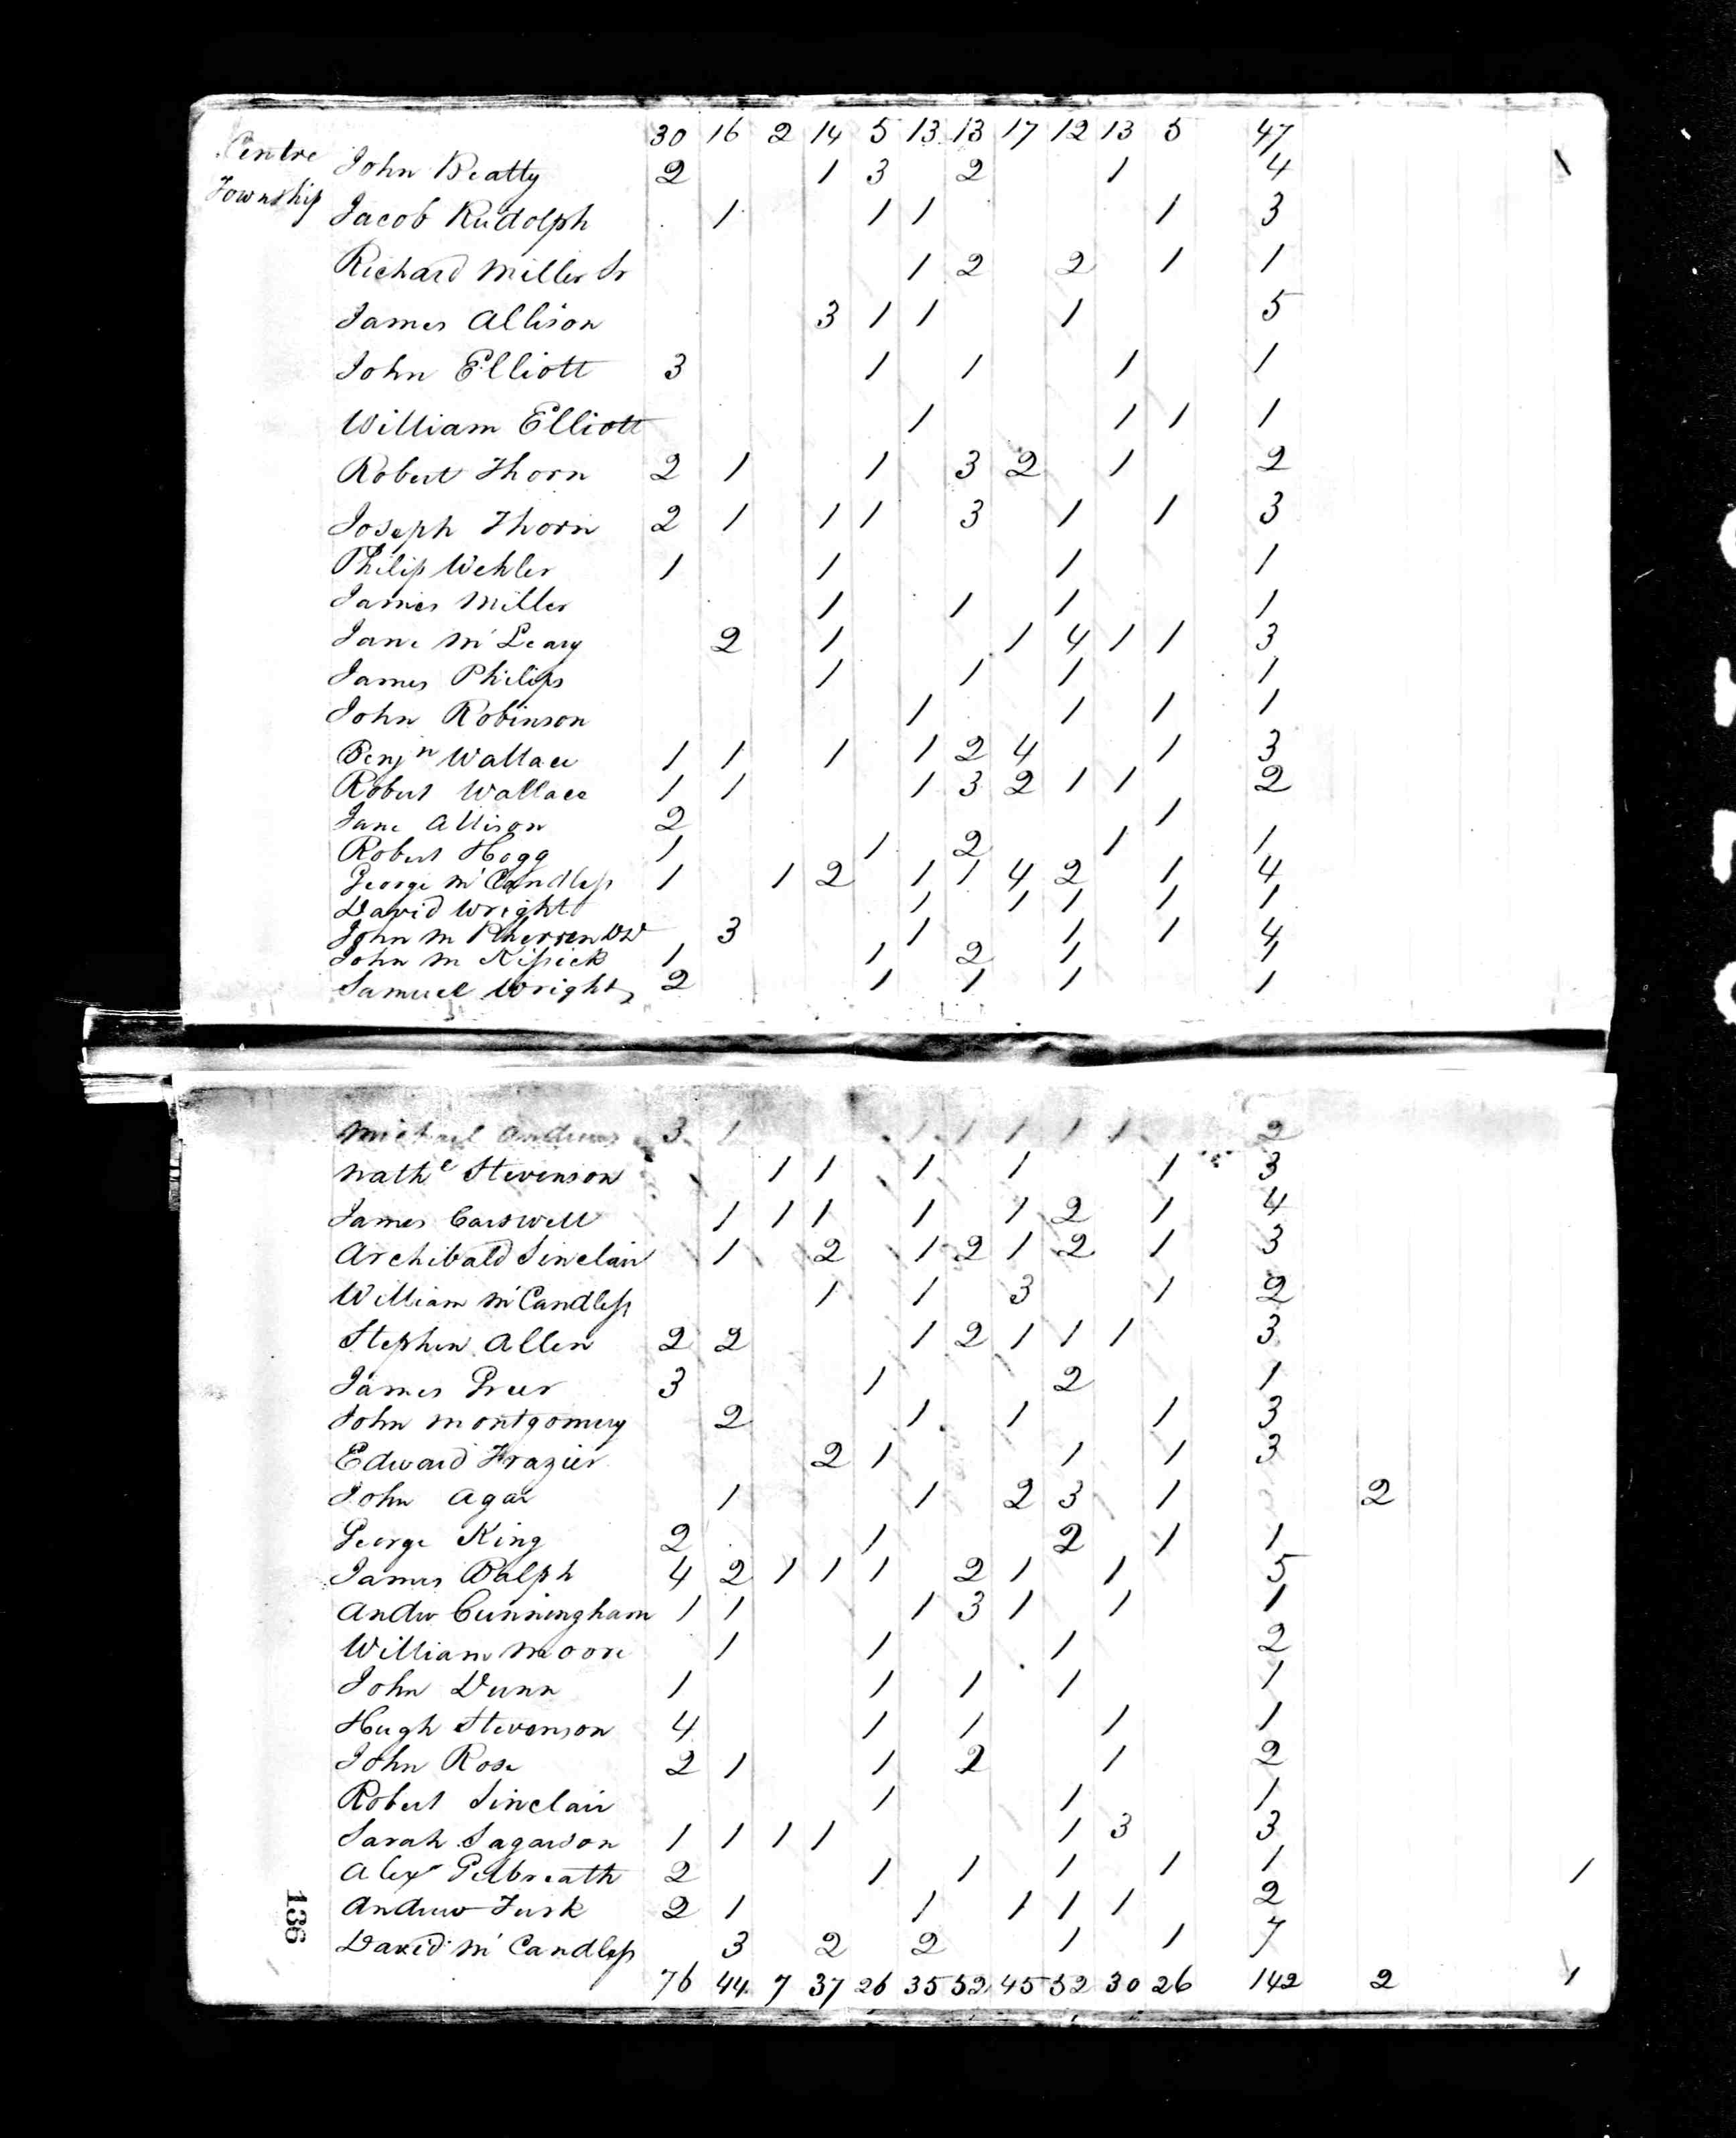 30 16 2 14 5 13 13 17 12 13 5 47
Centre Township
John Beatty 2 1 3 2 1 4 1
Jacob Rudolph 1 1 1 1 3
Richard Miller Sr 1 2 2 1 1
James Allison 3 1 1 1 5
John Elliott 3 1 1 1 1
William Elliott 1 1 1 1
Robert Thorn 2 1 1 3 2 1 2
Joseph Thorn 2 1 1 1 3 1 1 3
Philip Wehler 1 1 1 1
James Miller 1 1 1 1
Jane McLeary 2 1 1 4 1 1 3
James Philips 1 1 1 1
John Robinson 1 1 1 1
Benjn Wallace 1 1 1 1 2 4 1 3
Robert Wallace 1 1 1 3 2 1 1 2
Jane Allison 2 1
Robert Hogg 1 1 2 1 1
George McCandless 1 1 2 1 1 4 2 1 4
David Wright 1 1 1 1 1
John M Pherson 3 1 1 1 4
John M Kissick 1 1 2 1 1
Samuel Wright 2 1 1 1 1
Michael Andrews 3 1 1 1 1 1 1 2
Nathl Stevenson 1 1 1 1 1 3
James Carswell 1 1 1 1 1 2 1 4
Archibald Sinclair 1 2 1 2 1 2 1 3
William McCandless 1 1 3 1 2
Stephen Allen 2 2 1 2 1 1 1 3
James Greer 3 1 2 1
John Montgomery 2 1 1 1 3
Edward Frazier 2 1 1 1 3
John Agar 1 1 2 3 1 2
George King 2 1 2 1 1
James Ralph 4 2 1 1 1 2 1 1 5
Andw Cunningham 1 1 1 3 1 1 1
William Moore 1 1 1 2
John Dunn 1 1 1 1 1
Hugh Stevenson 4 1 1 1 1
John Rose 2 1 1 2 1 2
Robert Sinclair 1 1 1
Sarah Sagarson 1 1 1 1 1 3 3
Alexr Gilbreath 2 1 1 1 1 1 1
Andrew Turk 2 1 1 1 1 1 2
David McCandless 3 2 2 1 1 7
76 44 7 37 26 35 52 45 52 30 26 142 2 1
136